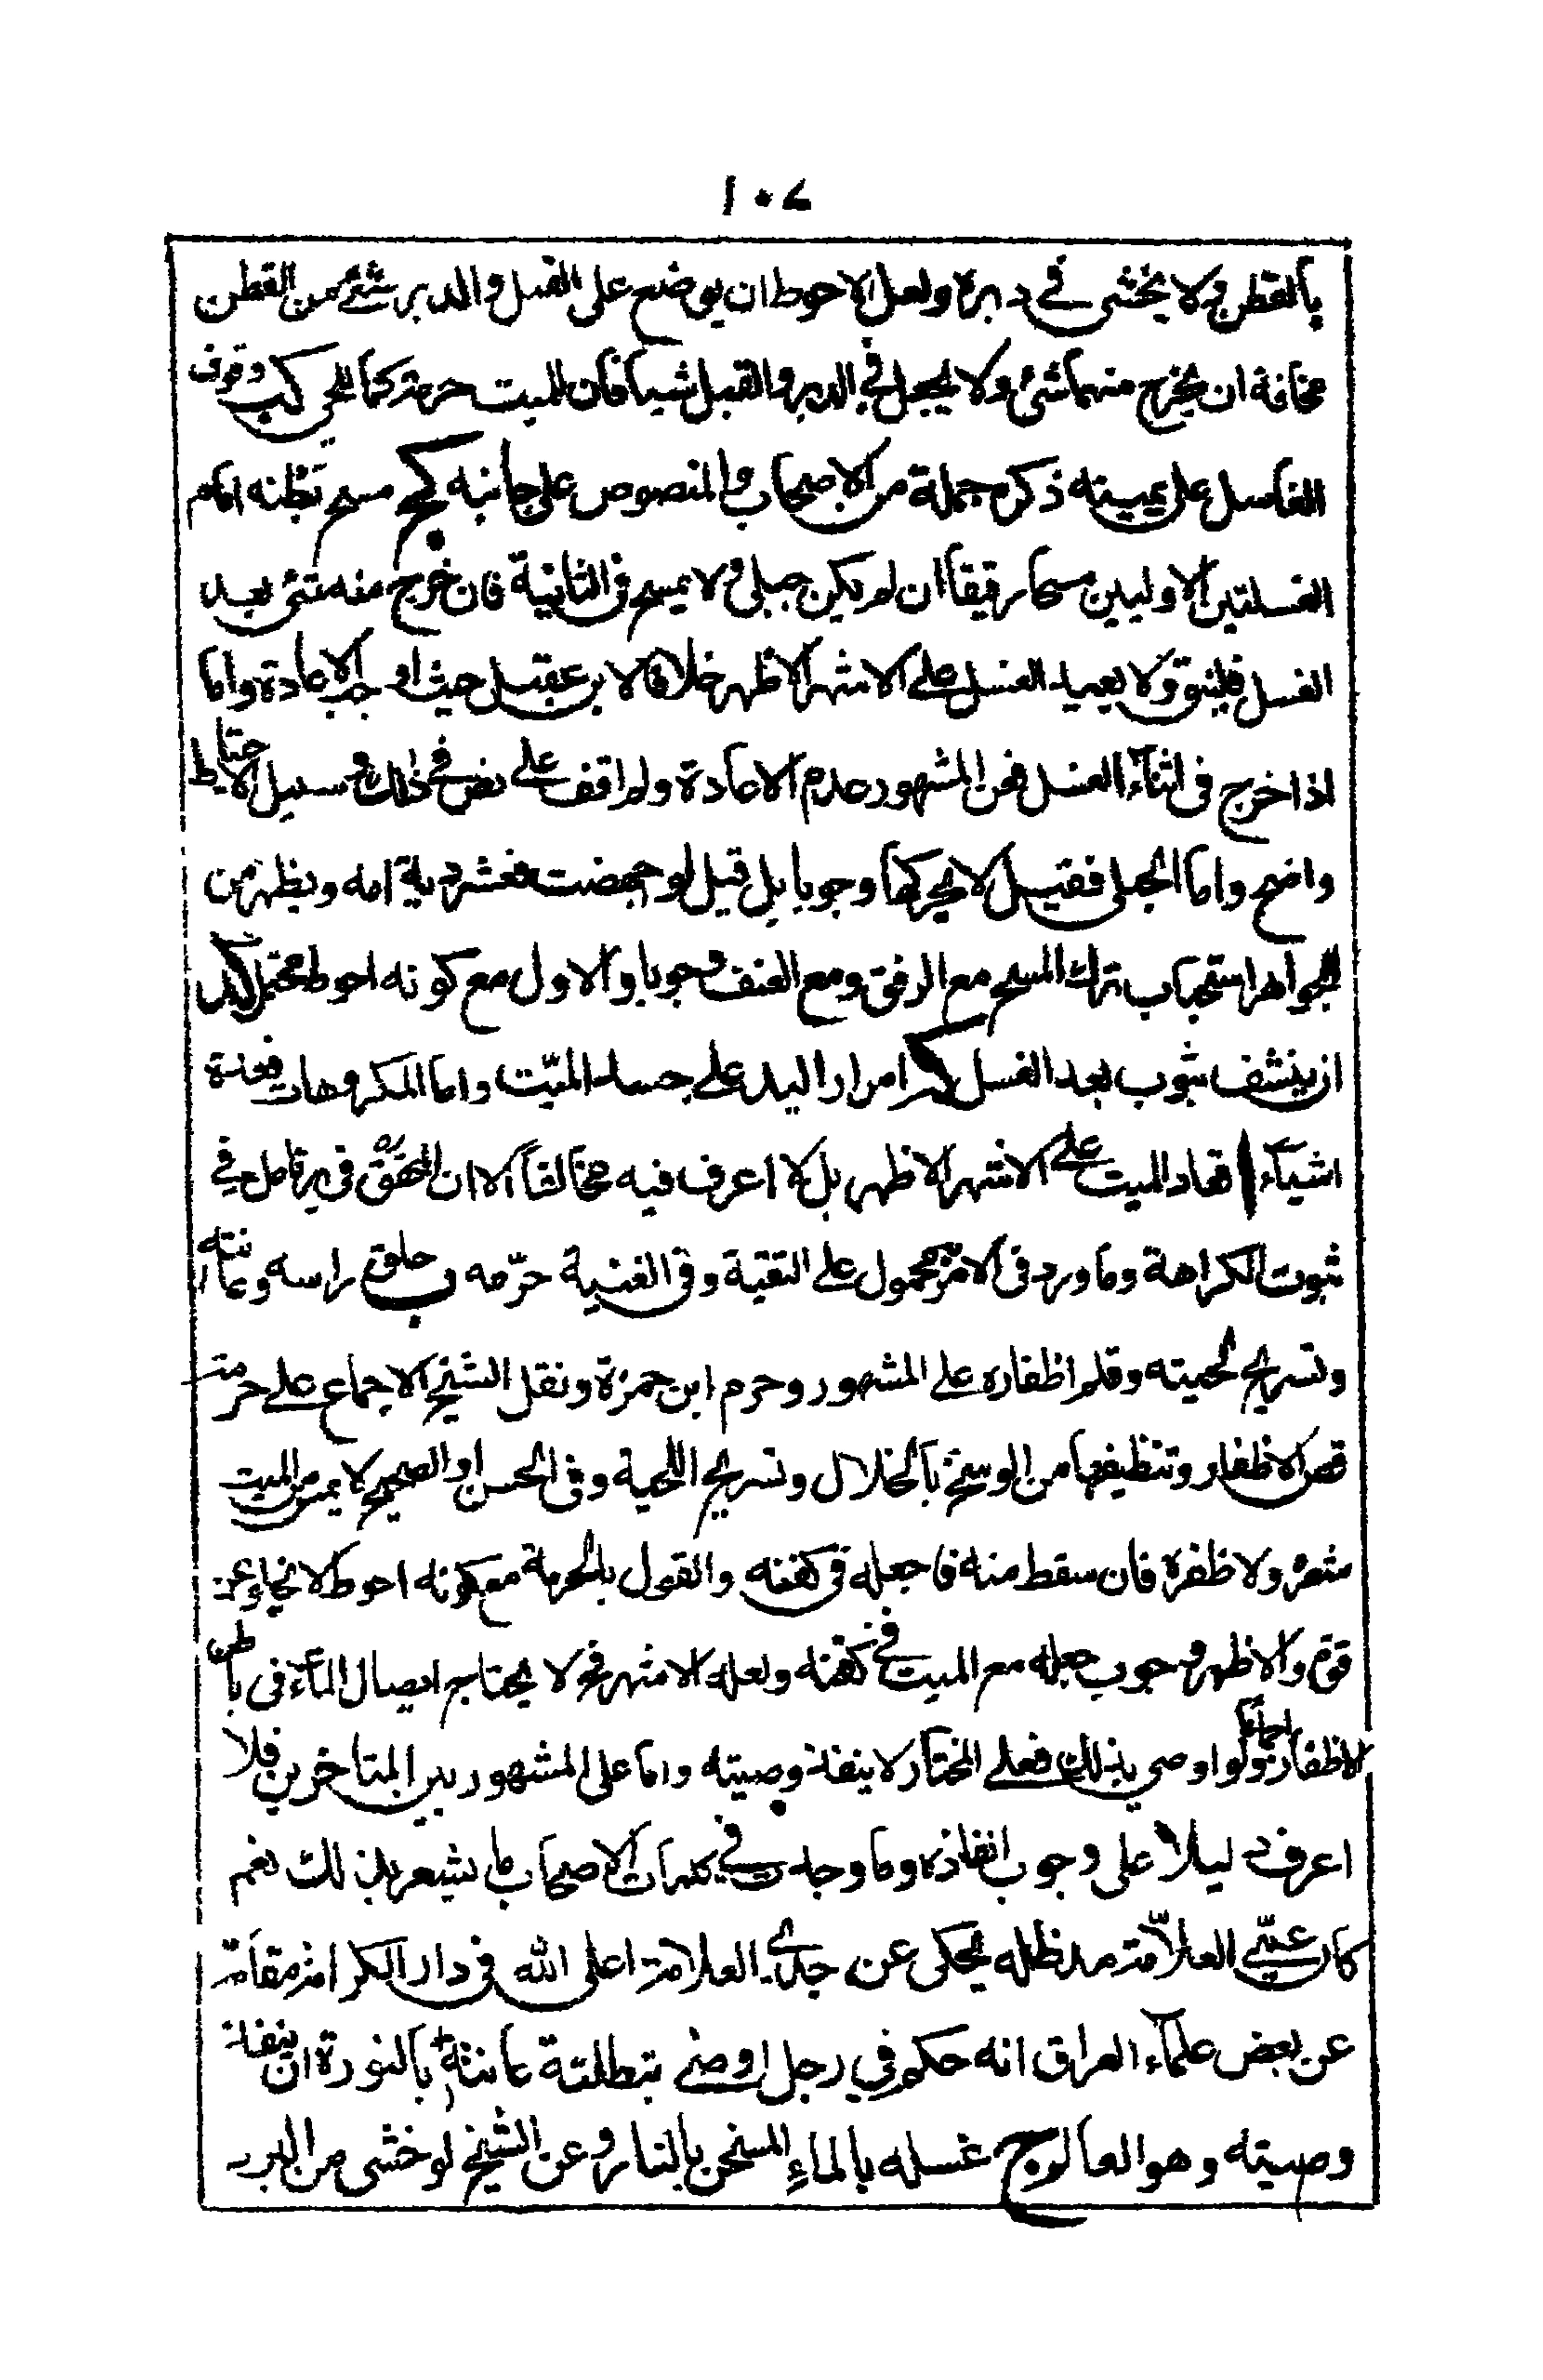 ١٠٧
بالقطن ولا يخشى في دبره ولعل الاحوط ان يوضع على القبل والدبر شئ من القطن
مخافة ان يخرج منهما شئ ولا يجعل في الدبر والقبل شيا فان للميت حرمة كما للحي كب وقوف
الغاسل على يمينه ذكره جملة من الاصحاب والمنصوص على جانبه كج مسح بطنه امام
الغسلتين الاوليين مسحا رقيقا ان لم يكن حبلى ولا يمسح في الثانية فان خرج منه شئ بعد
الغسل فلينق ولا يعيد الغسل على الاشهر الاظهر خلافا لابن عقيل حيث اوجب الاعادة واما
اذا خرج في اثناء الغسل فمن المشهور عدم الاعادة ولم اقف على نص في ذلك وسبيل الاحتياط
واضح واما الحبلى فقيل لا يحركها وجوبا بل قيل لو اجهضت فعشر دية امه ويظهر من
الجواهر استحباب ترك المسح مع الرفق ومع العنف وجوبا والاول مع كونه احوط محتمل كد
ان ينشف بثوب بعد الغسل كه امرار اليد على جسد الميّت واما المكروهات فعدة
اشياء ا قعاد الميت على الاشهر الاظهر بل لا اعرف فيه مخالفا الا ان المحقق في ير تامل في
ثبوت الكراهة وما ورد في الامر محمول على التقية وفي الغنية حرّمه ب حلق راسه وعانته
وتسريح لحيته وقلم اظفاره على المشهور وحرم ابن حمزة ونقل الشيخ الاجماع على حرمة
قص الاظفار وتنظيفها من الوسخ بالخلال وتسريح اللحية وفي الحسن او الصحيح لا يمس من الميت
شعر ولا ظفرة فان سقط منه فاجعله في كفنه والقول بالحرمة مع كونه احوط لا يخلو عن
قوة والاظهر وجوب جعله مع الميت في كفنه ولعله الاشهر ولا يحتاج ايصال الماء في باطن
الاظفار اجماعا ولو اوصى بذلك فعلى المختار لا ينفذ وصيته واما على المشهور بين المتاخرين فلا
اعرف دليلا على وجوب انفاذه وما وجدت في كلمات الاصحاب ما يشعر بذلك نعم
كان عمّي العلاّمة مد ظله يحكى عن جدي العلامة اعلى الله في دار الكرامة مقامه
عن بعض علماء العراق انه حكم في رجل اوصى بتطلية عانته بالنورة ان ينفذ
وصيته وهو العالم ج غسله بالماء المسخن بالنار وعن الشيخ لو خشى من البرد